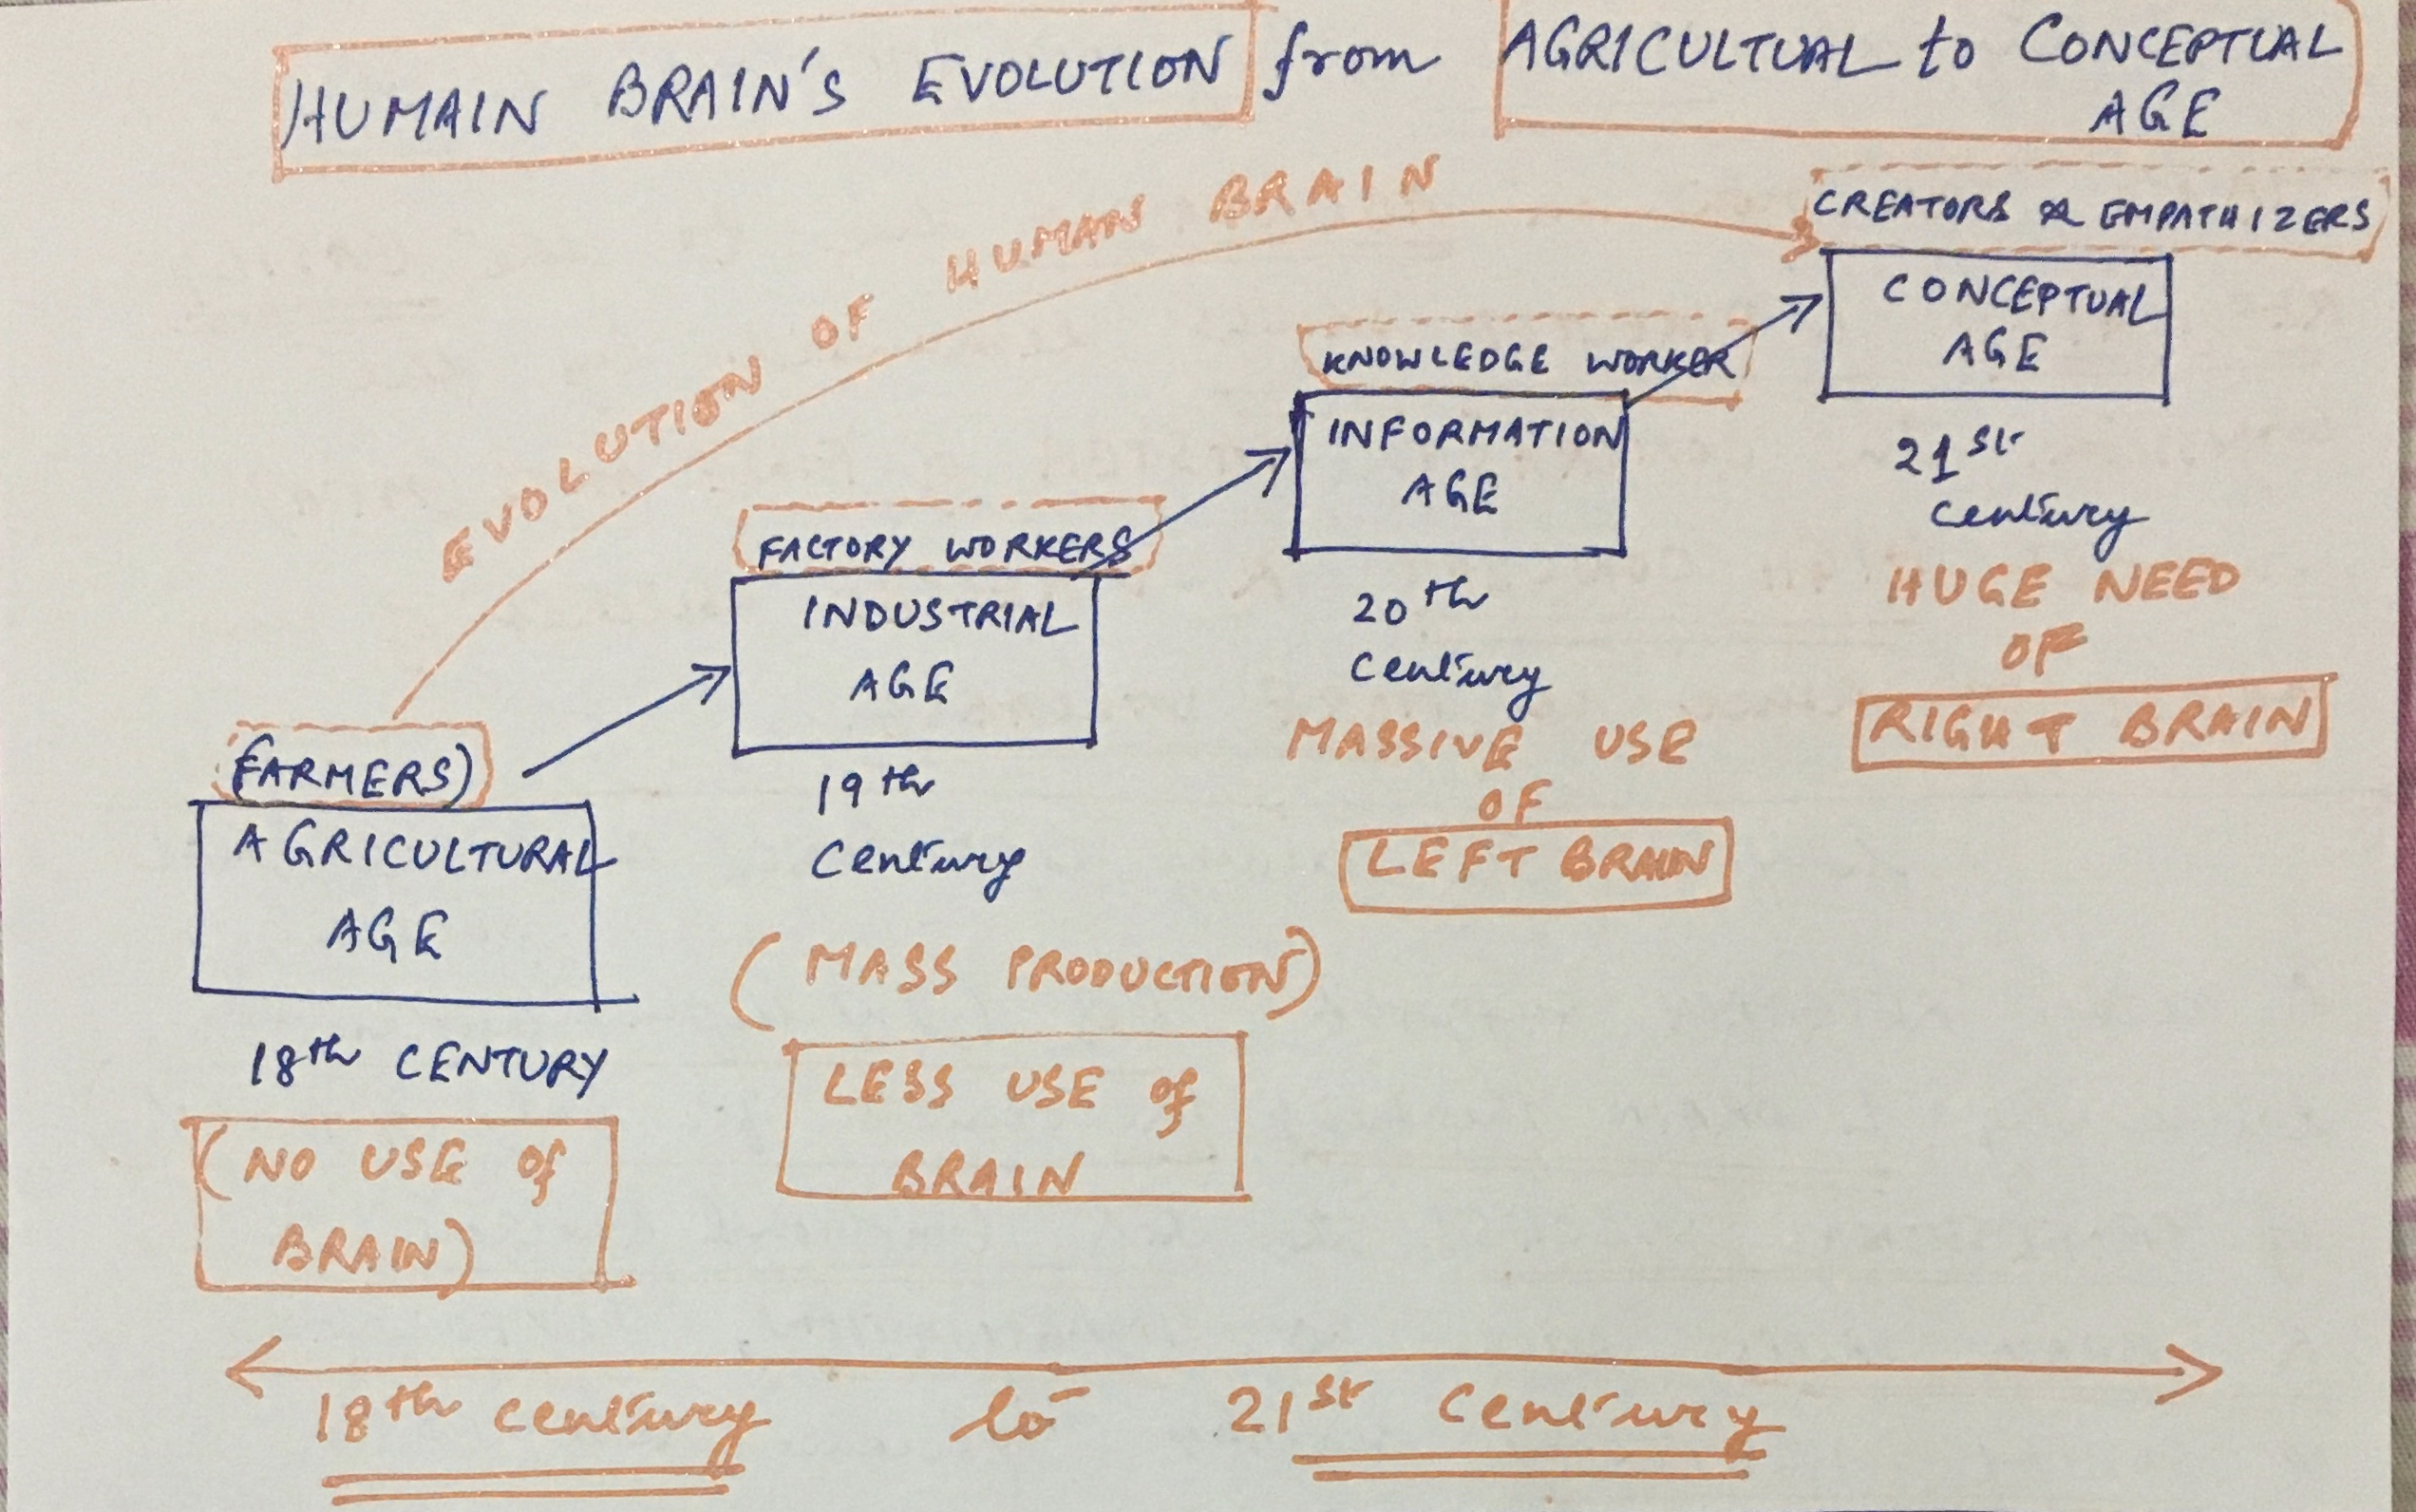 HUMAIN BRAIN'S EVOLUTION from AGRICULTUAL to CONCEPTUAL
AGE
EVOLUTION OF HUMAN BRAIN
CREATORS & EMPATHIZERS
CONCEPTUAL
AGE
21st
century
HUGE NEED
OF
RIGHT BRAIN
KNOWLEDGE WORKER
INFORMATION
AGE
20th
century
MASSIVE USE
OF
LEFT BRAIN
FACTORY WORKERS
INDUSTRIAL
AGE
19th
century
(MASS PRODUCTION)
LESS USE of
BRAIN
(FARMERS)
AGRICULTURAL
AGE
18th CENTURY
(NO USE of
BRAIN)
18th century to 21st century